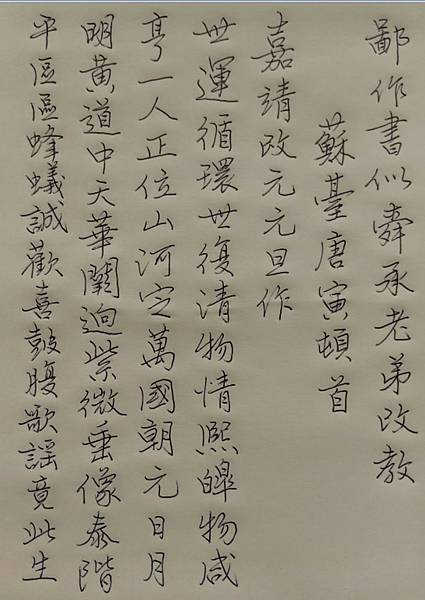 鄙作書似舜承老弟改教
蘇臺唐寅頓首
嘉靖改元元旦作
世運循環世復清物情熙皞物咸
亨一人正位山河定萬國朝元日月
明黃道中天華闕迥紫微垂像泰階
平區區蜂蟻誠歡喜鼓腹歌謡竟此生